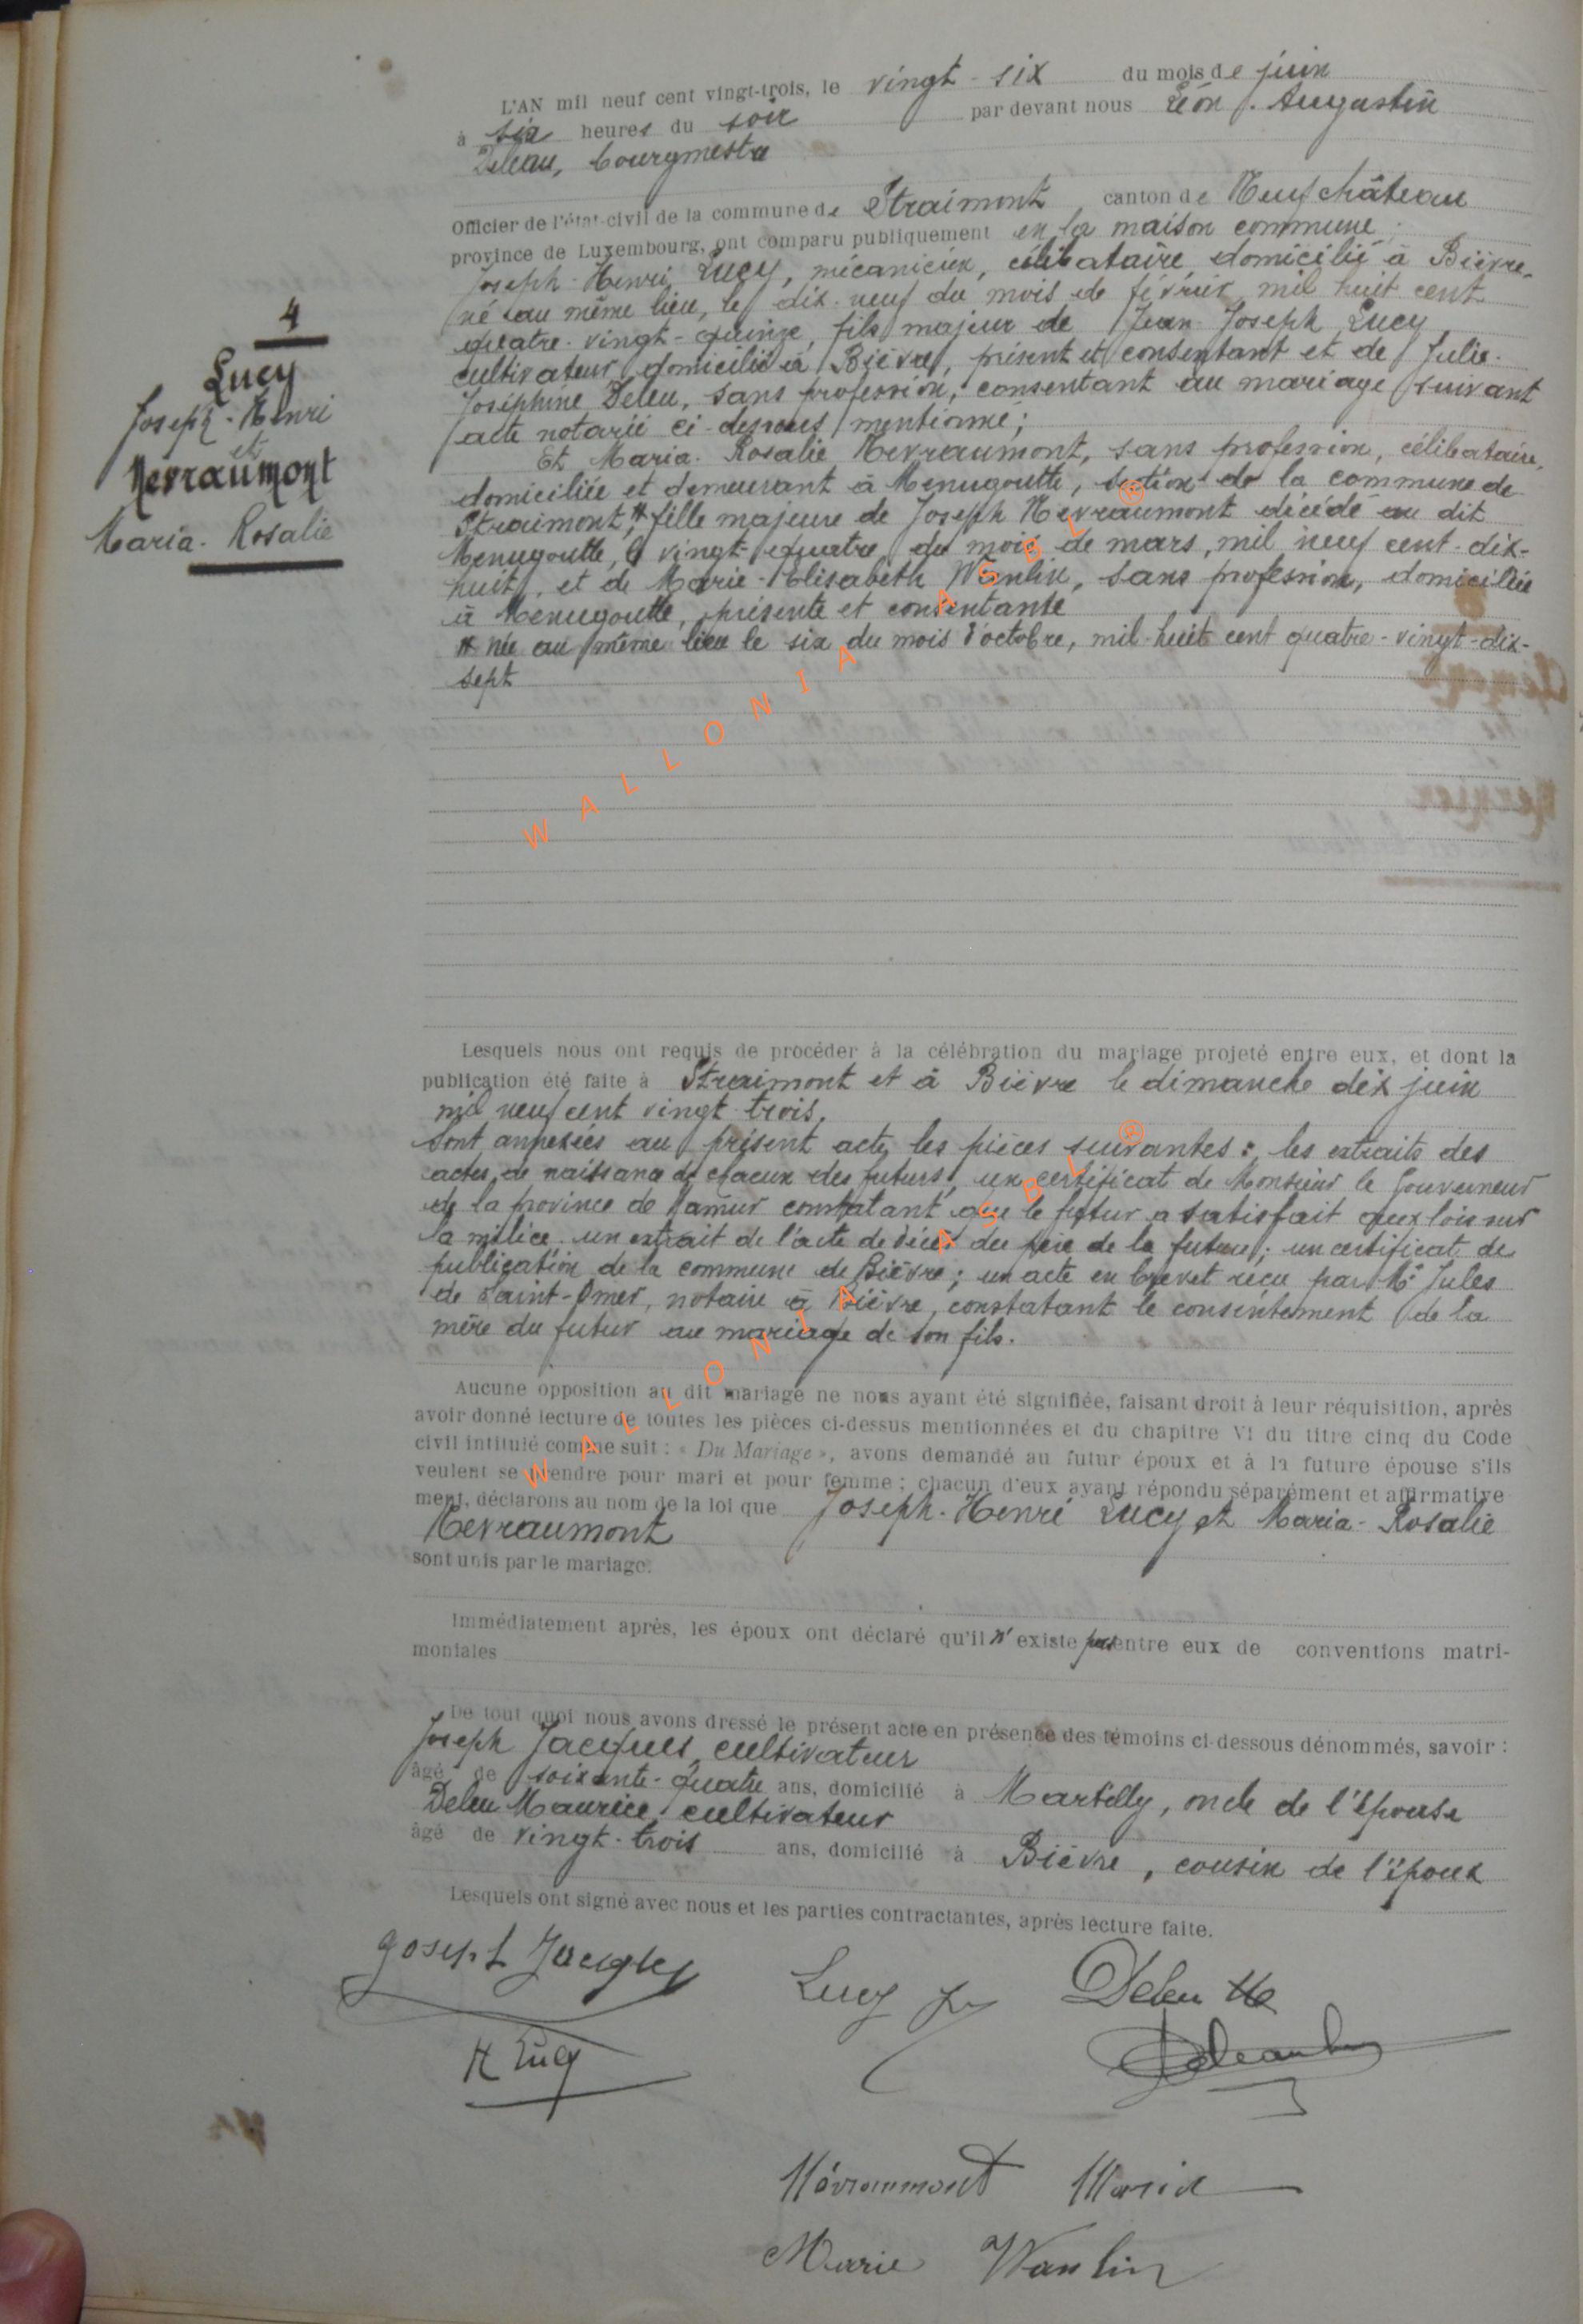 4
Lucy
Joseph-Henri
et
Nevraumont
Maria-Rosalie
L'AN mil neuf cent vingt-trois, le vingt-six du mois de juin
à six heures du soir par devant nous Léon J. Augustin
Deleau, bourgmestre
Officier de l'état-civil de la commune de Straimont, canton de Neufchâteau
province de Luxembourg, ont comparu publiquement en la maison commune:
Joseph-Henri Lucy, mécanicien, célibataire, domicilié à Bièvre,
né au même lieu, le dix-neuf du mois de février, mil huit cent
quatre-vingt-quinze, fils majeur de Jean-Joseph Lucy
cultivateur, domicilié à Bièvre, présent et consentant et de Julie-
Joséphine Deleu, sans profession, consentant au mariage suivant
acte notarié ci-dessous mentionné;
Et Maria-Rosalie Nevraumont, sans profession, célibataire,
domiciliée et demeurant à Menugoutte, section de la commune de
Straimont, # fille majeure de Joseph Nevraumont décédé au dit
Menugoutte, le vingt-quatre du mois de mars, mil neuf cent-dix-
huit, et de Marie-Elisabeth Wanlin, sans profession, domiciliée
à Menugoutte, présente et consentante
# née au même lieu le six du mois d'octobre, mil-huit cent quatre-vingt-dix-
sept
WALLONIA ASBL ®
Lesquels nous ont requis de procéder à la célébration du mariage projeté entre eux, et dont la
publication été faite à Straimont et à Bièvre le dimanche dix juin
mil neuf cent vingt-trois.
Sont annexées au présent acte les pièces suivantes: les extraits des
actes de naissance de chacun des futurs, un certificat de Monsieur le Gouverneur
de la province de Namur constatant que le futur a satisfait aux lois sur
la milice. un extrait de l'acte de décès du père de la future; un certificat de
publication de la commune de Bièvre; un acte en brevet reçu par Me Jules
de Saint-Omer, notaire à Bièvre, constatant le consentement de la
mère du futur au mariage de son fils.
WALLONIA ASBL ®
Aucune opposition au dit mariage ne nous ayant été signifiée, faisant droit à leur réquisition, après
avoir donné lecture de toutes les pièces ci-dessus mentionnées et du chapitre VI du titre cinq du Code
civil intitulé comme suit : « Du Mariage », avons demandé au futur époux et à la future épouse s'ils
veulent se prendre pour mari et pour femme ; chacun d'eux ayant répondu séparément et affirmative
ment, déclarons au nom de la loi que Joseph-Henri Lucy et Maria-Rosalie
Nevraumont
sont unis par le mariage.
Immédiatement après, les époux ont déclaré qu'il n'existe pas entre eux de conventions matri-
moniales
De tout quoi nous avons dressé le présent acte en présence des témoins ci-dessous dénommés, savoir :
Joseph Jacques, cultivateur
âgé de soixante-quatre ans, domicilié à Martilly, oncle de l'épouse
Deleu Maurice, cultivateur
âgé de vingt-trois ans, domicilié à Bièvre, cousin de l'époux
Lesquels ont signé avec nous et les parties contractantes, après lecture faite.
Joseph Jacques
Lucy J
Deleu M
H Lucy
Névraumont Maria
Marie Wanlin